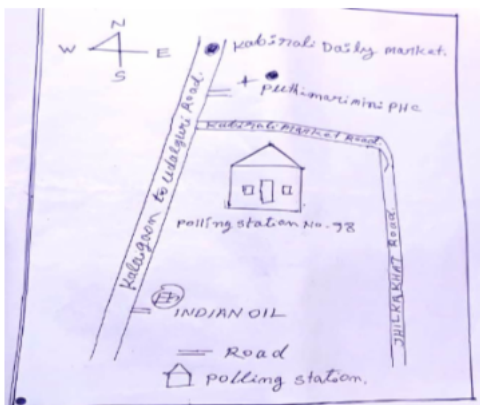 N
W E
S
Kabirali Daily market.
Puthimari mini PHC
Kabirali Market Road
Kalaigaon to Udalguri Road.
Polling station No. 98
JHILKAKHAT ROAD
INDIAN OIL
Road
Polling station.